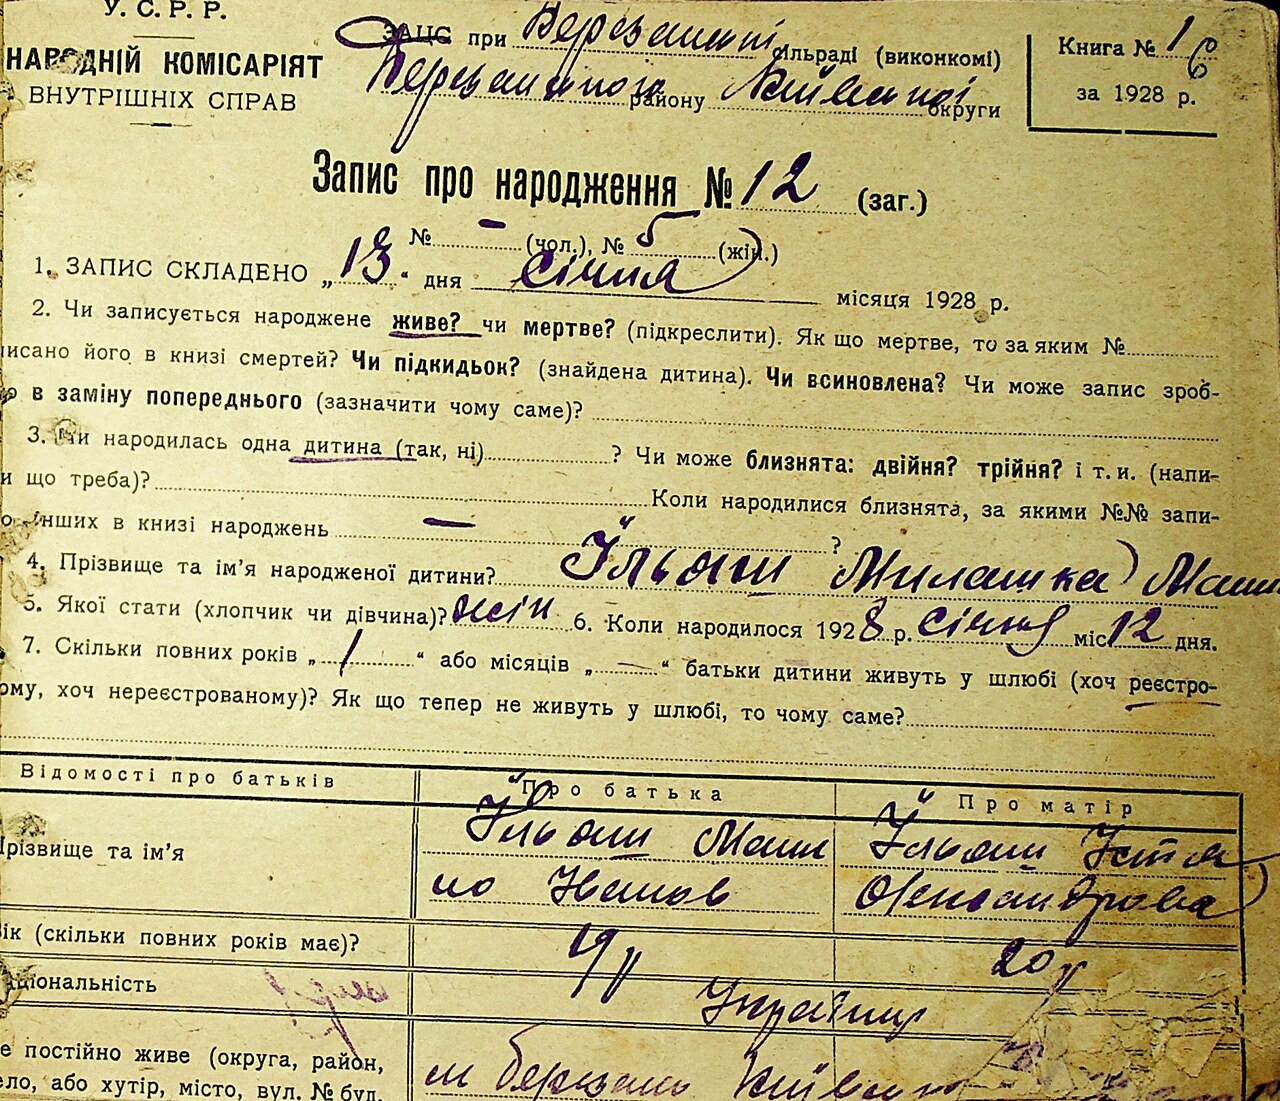 У. С. Р. Р.
НАРОДНІЙ КОМІСАРІЯТ
ВНУТРІШНІХ СПРАВ
ЗАЦС при сільраді (виконкомі)
району округи
Книга № 1
за 1928 р.
Запис про народження № 12 (заг.)
№ - (чол.), № 5 (жін.)
1. ЗАПИС СКЛАДЕНО „13“ дня Січня місяця 1928 р.
2. Чи записується народжене живе? чи мертве? (підкреслити). Як що мертве, то за яким №
писано його в книзі смертей? Чи підкидьок? (знайдена дитина). Чи всиновлена? Чи може запис зроб-
о в заміну попереднього (зазначити чому саме)?
3. Чи народилась одна дитина (так, ні) ? Чи може близнята: двійня? трійня? і т. и. (напи-
и що треба)? Коли народилися близнята, за якими №№ запи-
о інших в книзі народжень — ?
4. Прізвище та ім’я народженої дитини? Їльяш
5. Якої стати (хлопчик чи дівчина)? жін 6. Коли народилося 1928 р. січня міс 12 дня.
7. Скільки повних років „1“ або місяців „—“ батьки дитини живуть у шлюбі (хоч реєстро-
ому, хоч нереєстрованому)? Як що тепер не живуть у шлюбі, то чому саме?
Відомості про батьків
Про батька
Про матір
Прізвище та ім’я
Їльяш
Їльяш
Вік (скільки повних років має)?
19 р
20 р
аціональність
Українці
е постійно живе (округа, район,
ело, або хутір, місто, вул. № буд.
м Березань